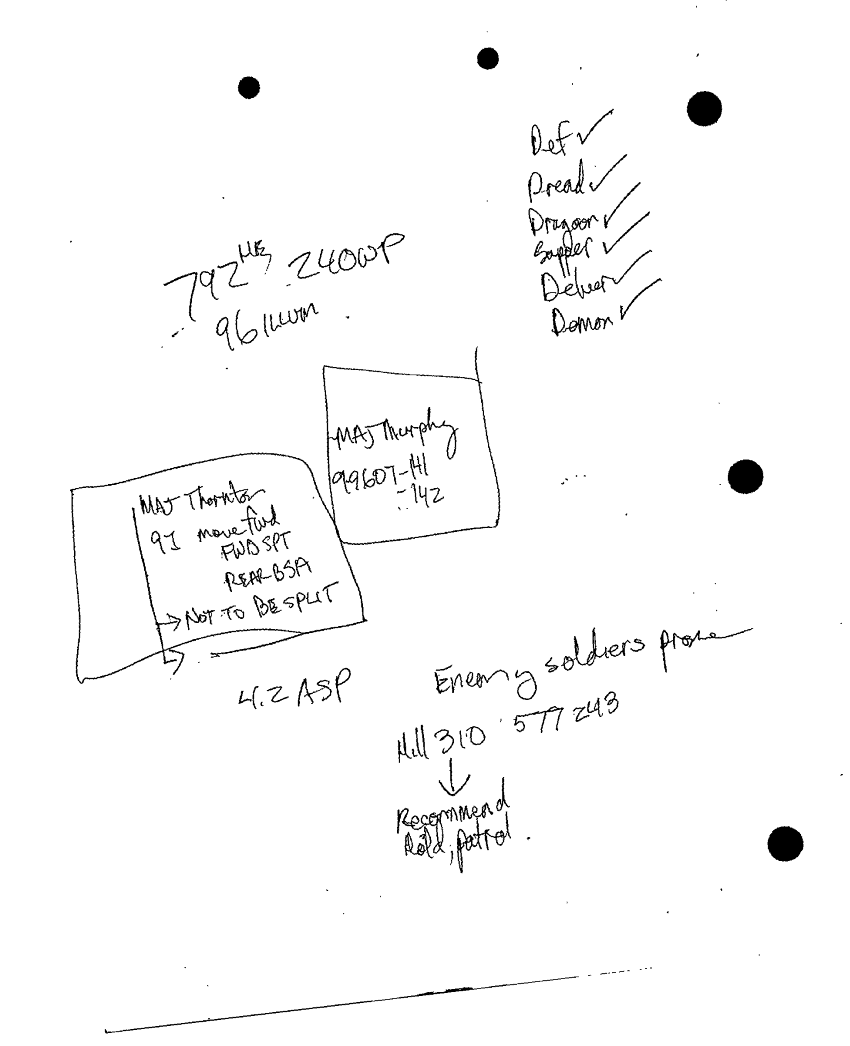 Def ✓
Dread ✓
Dragoon ✓
Sapper ✓
Deliver ✓
Demon ✓
792 HE, 240WP
96 Illum
MAJ Murphy
99607-141
-142
MAJ Thornton
91 move fwd
FWD SPT
REAR BSA
→ NOT TO BE SPLIT
4.2 ASP
Enemy soldiers prone
Hill 310 577243
↓
Recommend
Hold, patrol.